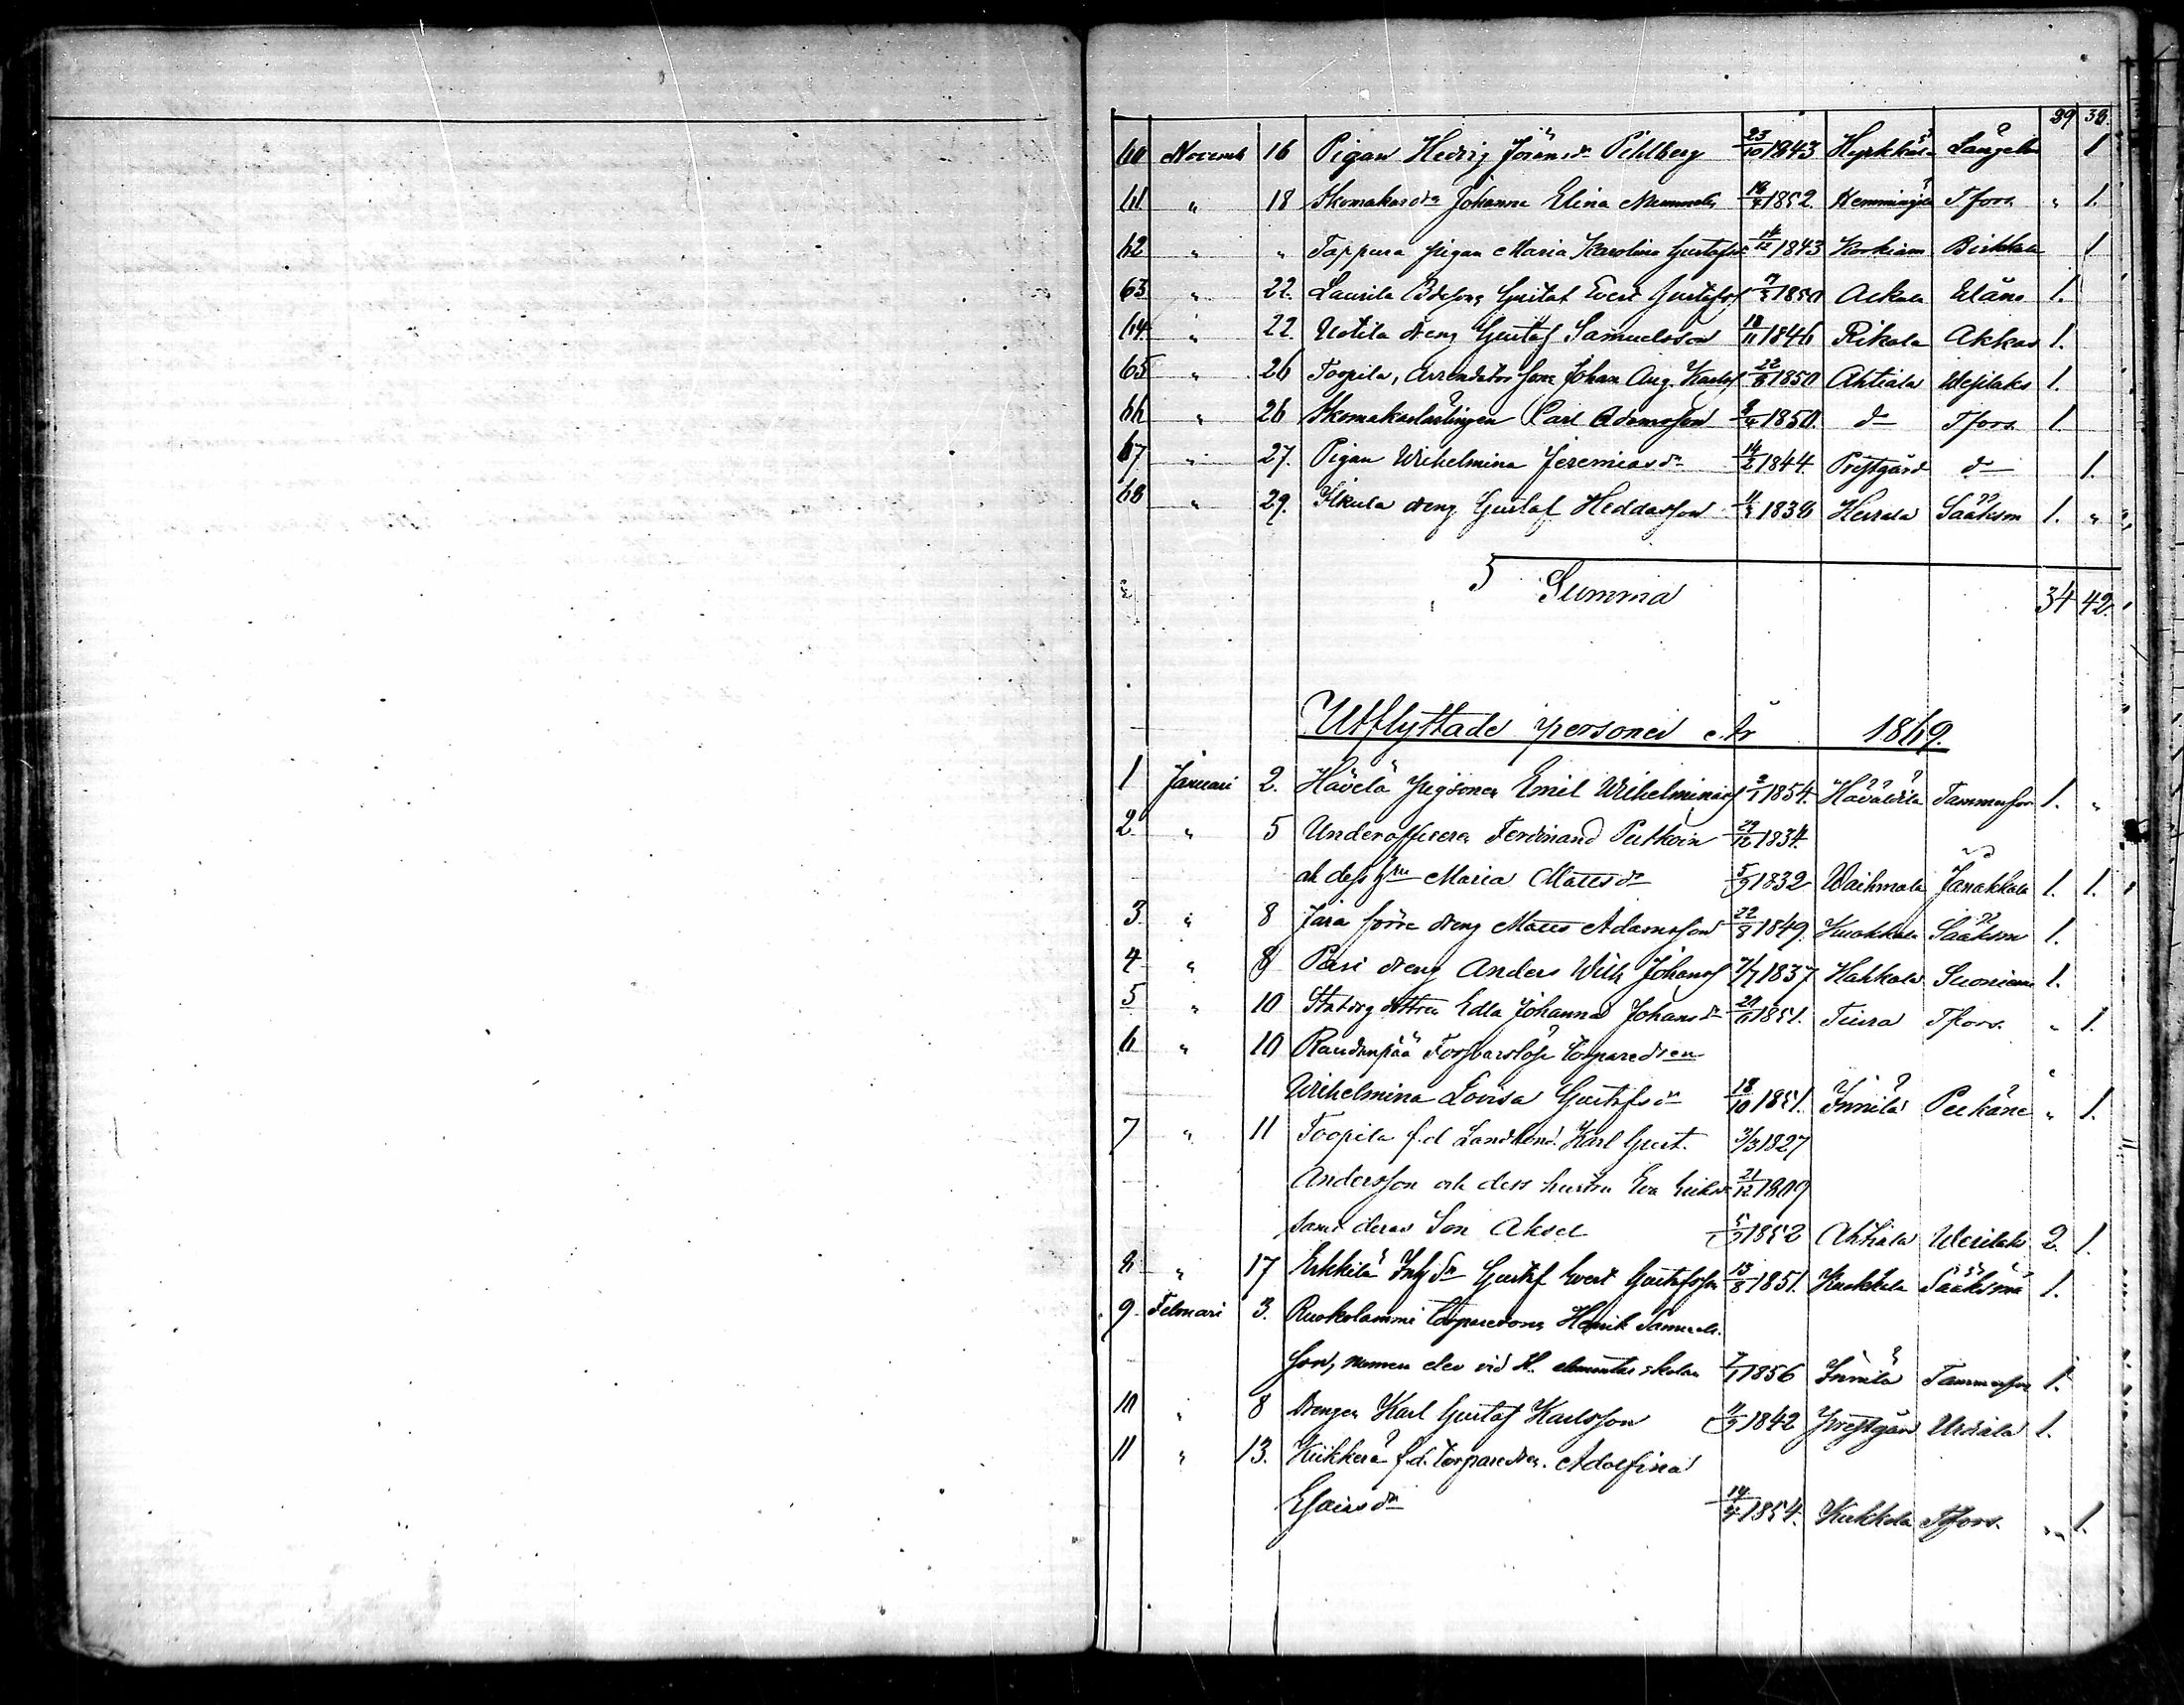 29 36.
60 Novemb 16 Pigan Hedvig Jöransdr Pihlberg 23/10 1843 Hyrkkälä Längelm 1
61 " 18 Skomakaredr Johanna Elina 18/4 1852. Hemmingilä Tfors " 1.
62 " " Tappura pigan Maria Karolina Gustafsdr 14/12 1843 Korkiam Birkkala 1
63 " 22. Laurila Gustaf Evert Gustafss 1850 Ackala 1.
64. " 22. Uotila dreng Gustaf Samuelsson 18/11 1846 Rikala Akkas 1.
65 " 26 Toopila, Arrendators son Johan Aug. Karlss 22/8 1850 Ahtiala Wesilaks 1.
66 " 26 Skomakarlärlingen Carl Adamsson 8/4 1850. do Tfors 1.
67 " 27. Pigan Wilhelmina Jeremiasdr 14/2 1844. Prestgård do 1.
68 " 29. Ilkula dreng Gustaf Heddasson 1838 Herrala Sääksm 1. "
Summa 34 42.
Utflyttade personer År 1869.
1 Januari 2. Hävelä pigsonen Emil Wilhelminass 2/1 1854. Tammerfors 1. "
2. " 5 Underofficeren Ferdinand Putkoin 29/12 1834.
ock dess hu Maria Mattsdr 5/9 1832 Waihmala Janakkala 1. 1.
3. " 8 Jara förre dreng Matts Adamsson 22/8 1849. Kuokkala Sääksm 1.
4 " 8 Pasi dreng Anders Wilh Johanss 7/7 1837 Hahkala Suoniemi 1.
5 " 10 dottren Edla Johanna Johansdr 1851. Tiura Tfors. " 1.
6 " 10 Raudanpää Torparedren
Wilhelmina Lovisa Gustafsdr 18/10 1851. Innilä Pelkäne " 1.
7 " 11 Toopila f.d. Landbond. Karl Gust. 3/3 1827
Andersson och dess hustru Eva Eriksdr 21/12 1809
samt deras Son Aksel 5/9 1852 Ahtiala Wesilaks 2. 1.
8 " 17 Erkkilä Gustaf Evert Gustafsson 13/8 1851. Kuokkala Sääksmä 1.
9. Februari 3. Ruokolammi torparesons Henrik Samuels-
son, numera elev vid H. elementar skolan 7/1 1856 Innilä Tammerfors 1.
10 " 8 Drengen Karl Gustaf Karlsson 11/9 1842 Prestgård Urdiala 1.
11 " 13. f.d. Torparedren. Adolfina
Esaiasdr 14/4 1854. Kukkola Tfors. " 1.